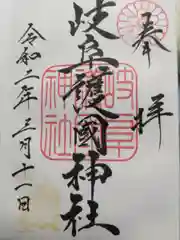 奉拝
岐阜護國神社
令和二年三月十一日
岐阜護國神社